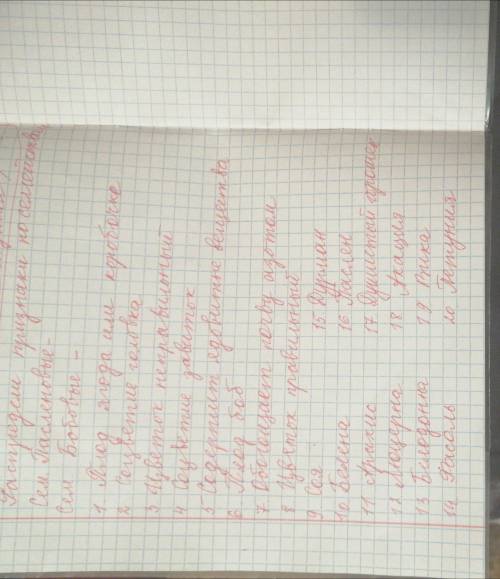 Распредели признаки по семейства
Сем Пасленовые-
Сем Бобовые -
1. Плод ягода или коробочка
2 Соцветие головка
3 Цветок неправильный
4 Соцветие завиток
5 Содержит ядовитые вещества
6 Плод боб
7 Обогащает почву азотом
8 Цветок правильный
9 Соя 15. Дурман
10 Белена 16 Паслен
11 Арахис 17 Душистый горошек
12 Люцерна 18 Акация
13 Белладонна 19 Вика
14 Фасоль 20 Петуния